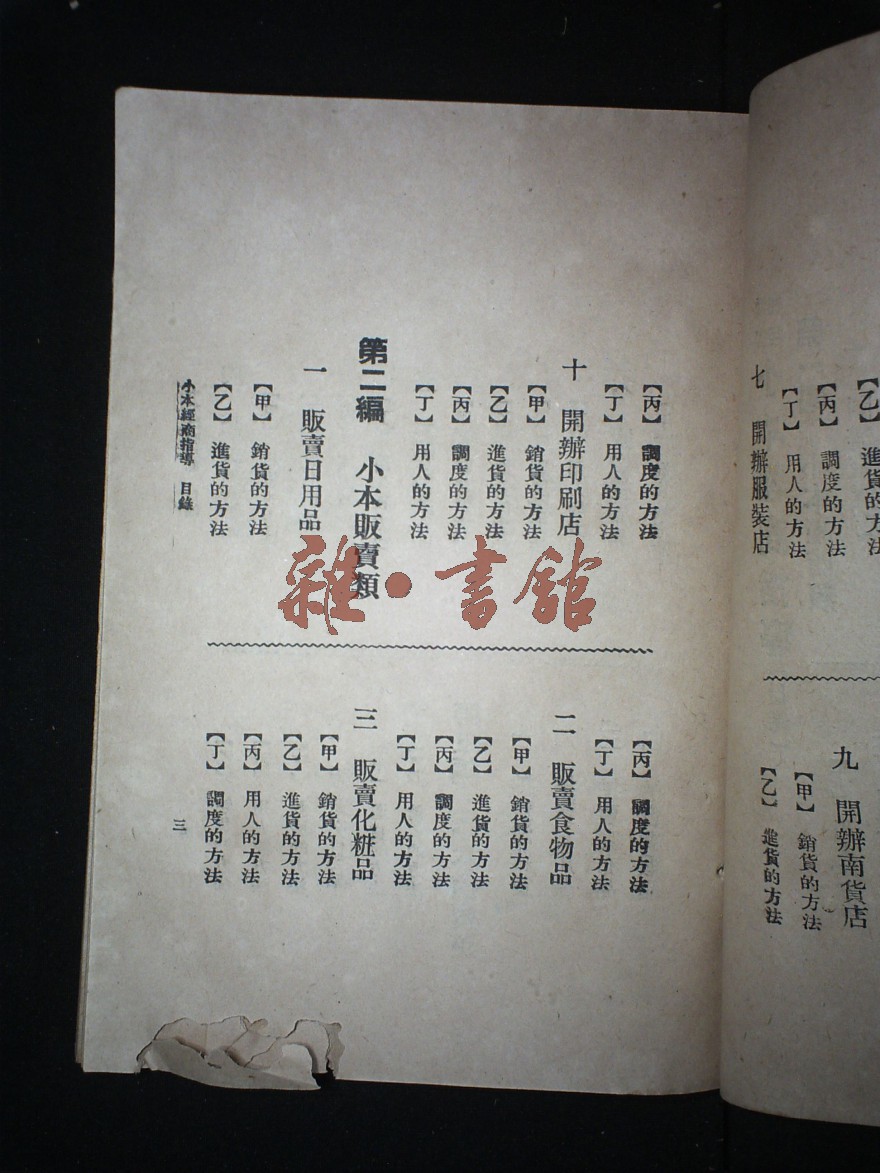 【乙】 進貨的方法
【丙】 調度的方法
【丁】 用人的方法
七 開辦服裝店
九 開辦南貨店
【甲】 銷貨的方法
【乙】 進貨的方法
【丙】 調度的方法
【丁】 用人的方法
十 開辦印刷店
【甲】 銷貨的方法
【乙】 進貨的方法
【丙】 調度的方法
【丁】 用人的方法
第二編 小本販賣類
一 販賣日用品
【甲】 銷貨的方法
【乙】 進貨的方法
【丙】 調度的方法
【丁】 用人的方法
二 販賣食物品
【甲】 銷貨的方法
【乙】 進貨的方法
【丙】 調度的方法
【丁】 用人的方法
三 販賣化粧品
【甲】 銷貨的方法
【乙】 進貨的方法
【丙】 用人的方法
【丁】 調度的方法
小本經商指導 目錄
三
雜·書館